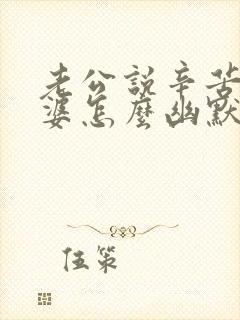 老公說辛苦
婆怎麼幽默
伍策